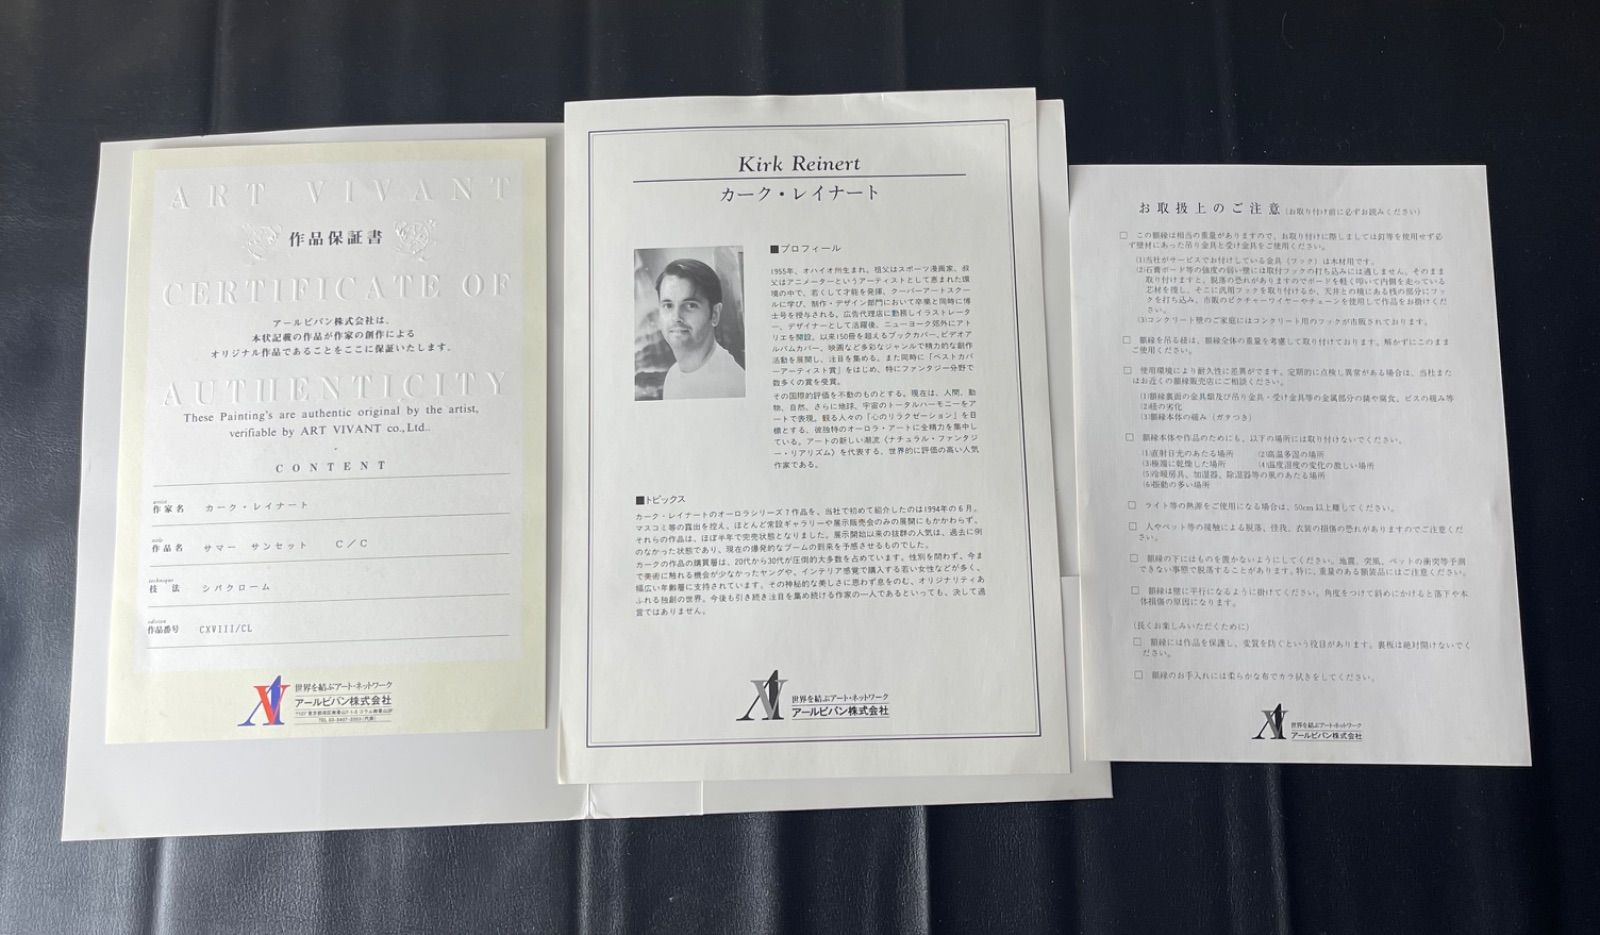 ART VIVANT
作品保証書
CERTIFICATE OF
アールビバン株式会社は、
本状記載の作品が作家の創作による
オリジナル作品であることをここに保証いたします。
AUTHENTICITY
These Painting's are authentic original by the artist,
verifiable by ART VIVANT co., Ltd..
CONTENT
artist
作家名 カーク・レイナート
作品名 サマー サンセット C/C
technique
技 法 シバクローム
edition
作品番号 CXVIII/CL
世界を結ぶアート・ネットワーク
アールビバン株式会社
Kirk Reinert
カーク・レイナート
■プロフィール
1955年、オハイオ州生まれ。祖父はスポーツ漫画家、叔
父はアニメーターというアーティストとして恵まれた環
境の中で、若くして才能を発揮。クーパーアートスクー
ルに学び、制作・デザイン部門において卒業と同時に博
士号を授与される。広告代理店に勤務しイラストレータ
ー、デザイナーとして活躍後、ニューヨーク郊外にアト
リエを開設。以来150冊を超えるブックカバー、ビデオア
ルバムカバー、映画など多彩なジャンルで精力的な創作
活動を展開し、注目を集める。また同時に「ベストカバ
ーアーティスト賞」をはじめ、特にファンタジー分野で
数多くの賞を受賞。
その国際的評価を不動のものとする。現在は、人間、動
物、自然、さらに地球、宇宙のトータルハーモニーをア
ートで表現。観る人々の「心のリラクゼーション」を目
標とする、彼独特のオーロラ・アートに全精力を集中し
ている。アートの新しい潮流（ナチュラル・ファンタジ
ー・リアリズム）を代表する、世界的に評価の高い人気
作家である。
■トピックス
カーク・レイナートのオーロラシリーズ7作品を、当社で初めて紹介したのは1994年の6月。
マスコミ等の露出を控え、ほとんど常設ギャラリーや展示販売会のみの展開にもかかわらず、
それらの作品は、ほぼ半年で完売状態となりました。展示開始以来の抜群の人気は、過去に例
のなかった状態であり、現在の爆発的なブームの到来を予感させるものでした。
カークの作品の購買層は、20代から30代が圧倒的大多数を占めています。性別を問わず、今ま
で美術に触れる機会が少なかったヤングや、インテリア感覚で購入する若い女性などが多く、
幅広い年齢層に支持されています。その神秘的な美しさに思わず息をのむ、オリジナリティあ
ふれる独創の世界。今後も引き続き注目を集め続ける作家の一人であるといっても、決して過
言ではありません。
世界を結ぶアート・ネットワーク
アールビバン株式会社
お取扱上のご注意（お取り付け前に必ずお読みください）
□ この額縁は相当の重量がありますので、お取り付けに際しましては釘等を使用せず必
ず壁材にあった吊り金具と受け金具をご使用ください。
(1)当社がサービスでお付けしている金具（フック）は木材用です。
(2)石膏ボード等の強度の弱い壁には取付フックの打ち込みには適しません。そのまま
取り付けますと、脱落の恐れがありますのでボードを軽く叩いて内側を走っている
芯材を捜し、そこに汎用フックを取り付けるか、天井との境にある桟の部分にフッ
クを打ち込み、市販のピクチャーワイヤーやチェーンを使用して作品をお掛けくだ
さい。
(3)コンクリート壁のご家庭にはコンクリート用のフックが市販されております。
□ 額縁を吊る紐は、額縁全体の重量を考慮して取り付けております。解かずにこのまま
ご使用ください。
□ 使用環境により耐久性に差異がでます。定期的に点検し異常がある場合は、当社また
はお近くの額縁販売店にご相談ください。
(1)額縁裏面の金具類及び吊り金具・受け金具等の金属部分の錆や腐食、ビスの緩み等
(2)紐の劣化
(3)額縁本体の緩み（ガタつき）
□ 額縁本体や作品のためにも、以下の場所には取り付けないでください。
(1)直射日光のあたる場所 (2)高温多湿の場所
(3)極端に乾燥した場所 (4)温度湿度の変化の激しい場所
(5)冷暖房具、加湿器、除湿器等の風のあたる場所
(6)振動の多い場所
□ ライト等の熱源をご使用になる場合は、50cm以上離してください。
□ 人やペット等の接触による脱落、怪我、衣装の損傷の恐れがありますのでご注意くだ
さい。
□ 額縁の下にはものを置かないようにしてください。地震、突風、ペットの衝突等予測
できない事態で脱落することがあります。特に、重量のある額装品にはご注意ください。
□ 額縁は壁に平行になるように掛けてください。角度をつけて斜めにかけると落下や本
体損傷の原因になります。
(長くお楽しみいただくために)
□ 額縁には作品を保護し、変質を防ぐという役目があります。裏板は絶対開けないでく
ださい。
□ 額縁のお手入れには柔らかな布でカラ拭きをしてください。
世界を結ぶアート・ネットワーク
アールビバン株式会社